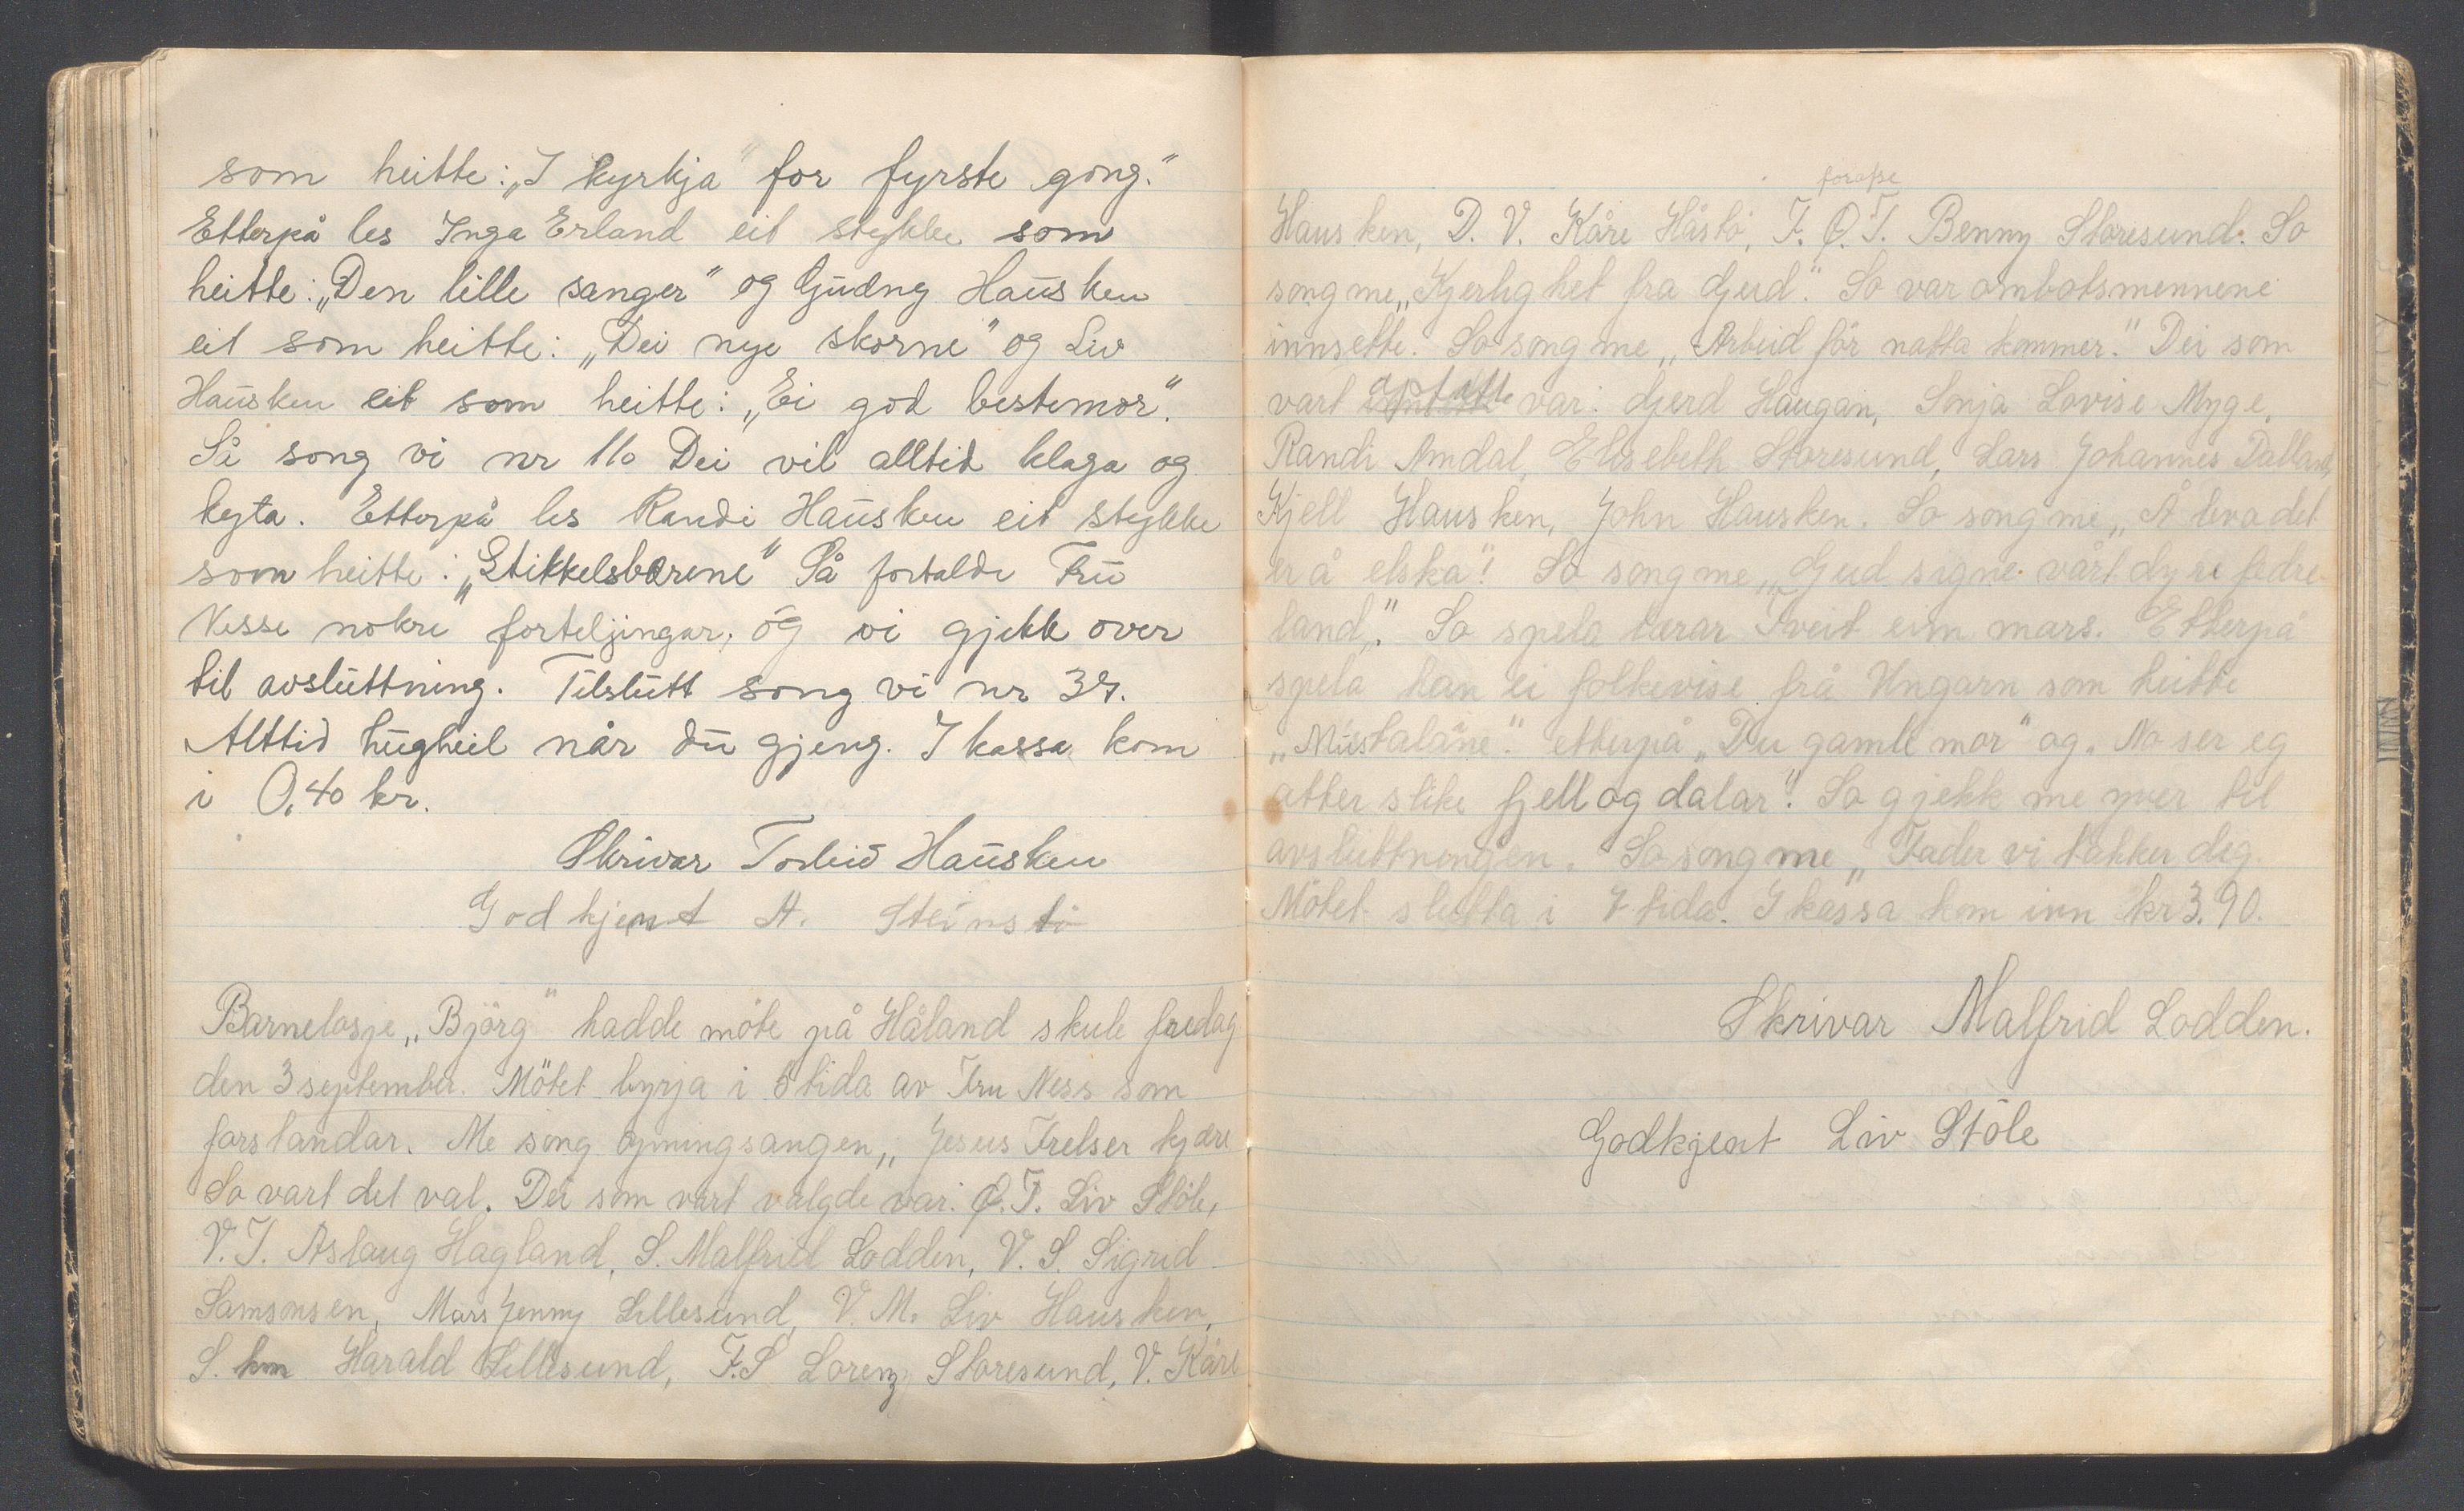 som heitte: „I kyrkja" for fyrste gong."
Etterpå les Inga Erland eit stykke som
heitte: „Den lille sanger" og Gudny Hausken
eit som heitte: „Dei nye skorne" og Liv
Hausken eit som heitte: „Ei god bestemor".
Så song vi nr 110 Dei vil alltid klaga og
kyta. Etterpå les Randi Hausken eit stykke
som heitte: „Stikkelsbærene" Så fortalde Fru
Nesse nokre forteljingar, og vi gjekk over
til avsluttning. Tilslutt song vi nr 37.
Alltid hugheil når du gjeng. I kassa kom
i 0,40 kr.
Skrivar Torleiv Hausken
Godkjent A. Steinstö
Barnelosje „Björg" hadde möte på Håland skule fredag
den 3 september. Mötet byrja i 5 tida av Fru Ness som
forstandar. Me song opningsangen „Jesus Frelser kjære
So vart det val. Dei som vart valgde var: Ø.T. Liv Stöle,
V.T. Aslaug Hagland, S. Malfrid Lodden, V.S. Sigrid
Samsonsen, Mars Jenny Lillesund, V.M. Liv Hausken,
S. km Harald Lillesund, F.S Lorenz Storesund, V. Kåre
forøpe
Hausken, D.V. Kåre Håstö, F.Ø.T. Benny Storesund. So
song me „Kjerlighet fra Gud". So var ombotsmennene
innsette. So song me „Arbeid for natta kommer." Dei som
vart opptatte var: Gjerd Haugan, Sonja Lovise Myge,
Randi Amdal, Elisebeth Storesund, Lars Johannes Dalland,
Kjell Hausken, John Hausken. So song me „Å leva det
er å elska"! So song me „Gud signe vårt dyre fedre-
land". So spela lærar Tveit ein mars. Etterpå
spela han ei folkevise frå Ungarn som heitte
„Mustalåne". etterpå „Du gamle mor" og „No ser eg
atter slike fjell og dalar". So gjekk me yver til
avsluttningen. So song me „Fader vi takker deg.
Mötet slutta i 7 tida. I kassa kom inn kr 3.90.
Skrivar Malfrid Lodden.
Godkjent Liv Stöle